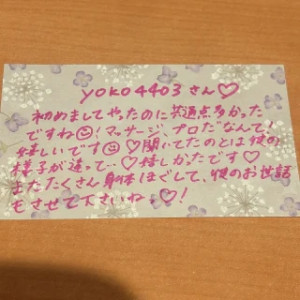 yoko4403さん♡
初めましてやったのに共通点多かった
ですね☺!マッサージ、プロだなんて!
嬉しいです☺♡聞いてたのとは彼の
様子が違って…♡嬉しかたです♡
またたくさん身体ほぐして、彼のお世話
もさせて下さいね♡!